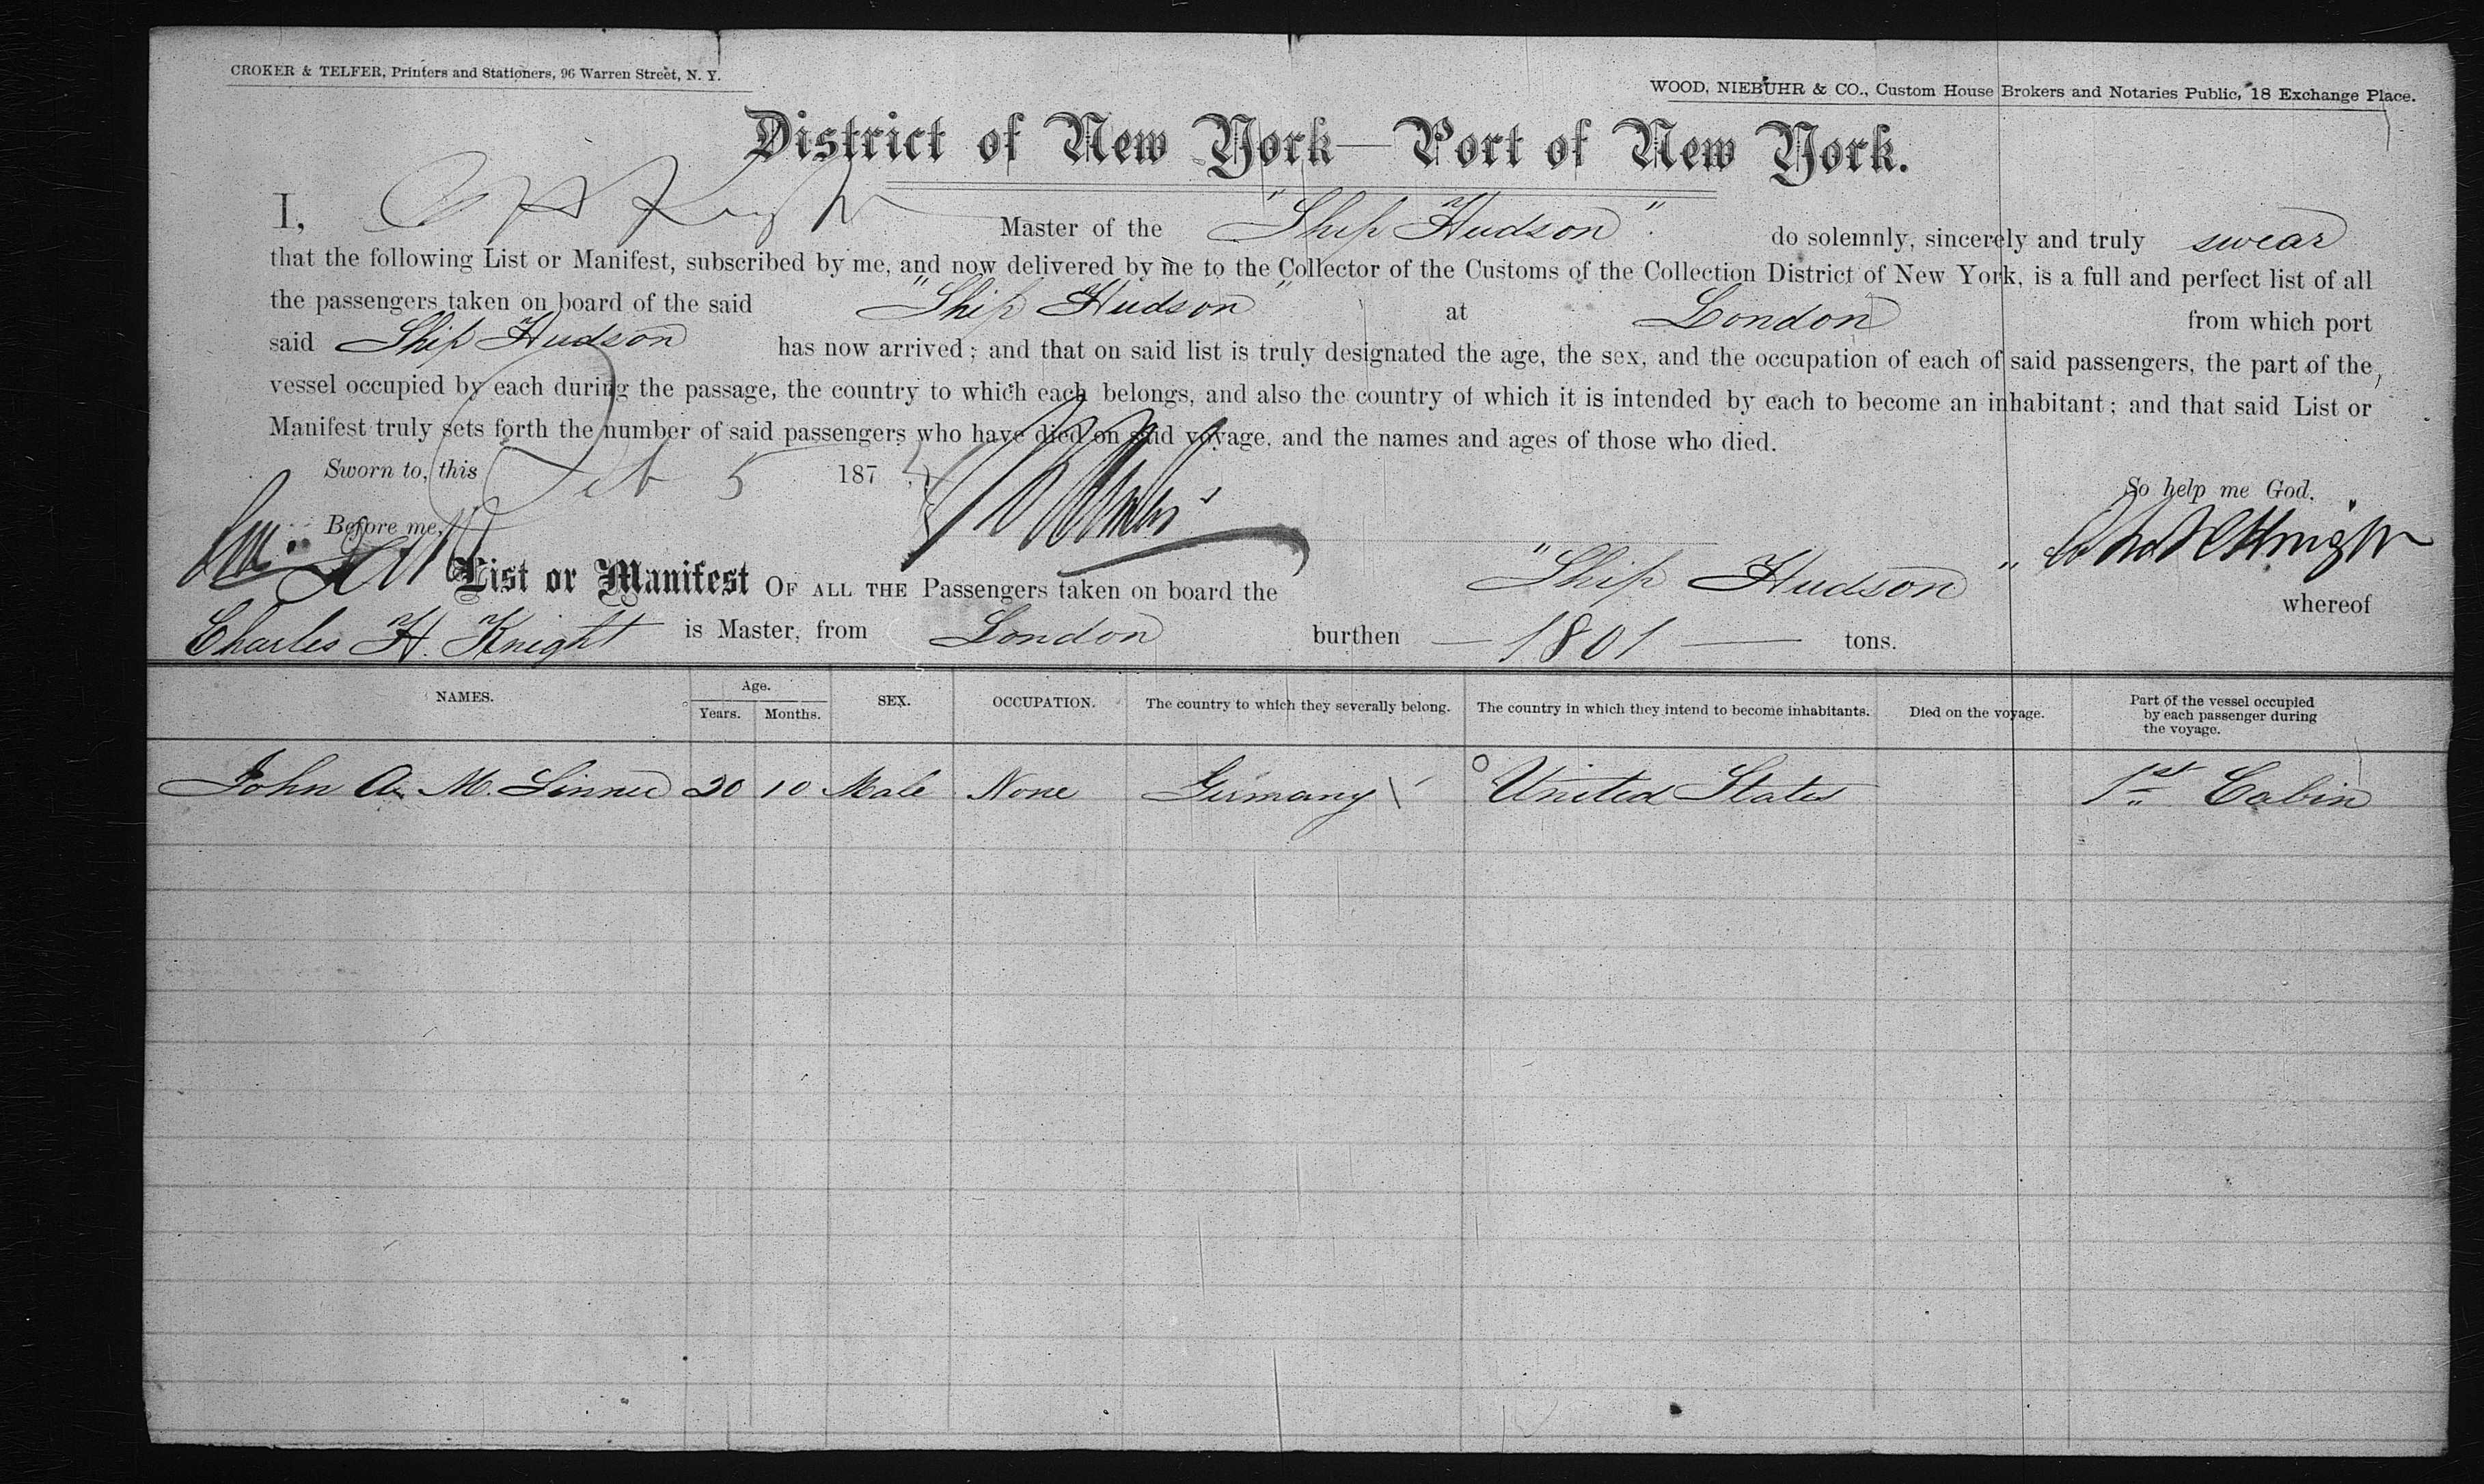 CROKER & TELFER, Printers and Stationers, 96 Warren Street, N. Y.
WOOD, NIEBUHR & CO., Custom House Brokers and Notaries Public, 18 Exchange Place.
District of New York—Port of New York.
I, C H Knight Master of the "Ship Hudson". do solemnly, sincerely and truly swear
that the following List or Manifest, subscribed by me, and now delivered by me to the Collector of the Customs of the Collection District of New York, is a full and perfect list of all
the passengers taken on board of the said "Ship Hudson" at London from which port
said Ship Hudson has now arrived; and that on said list is truly designated the age, the sex, and the occupation of each of said passengers, the part of the
vessel occupied by each during the passage, the country to which each belongs, and also the country of which it is intended by each to become an inhabitant; and that said List or
Manifest truly sets forth the number of said passengers who have died on said voyage, and the names and ages of those who died.
Sworn to, this Feb 5 187
So help me God,
Before me,
Knight
List or Manifest OF ALL THE Passengers taken on board the "Ship Hudson" whereof
Charles H. Knight is Master, from London burthen — 1801 — tons.
NAMES. Age. Years. Months. SEX. OCCUPATION. The country to which they severally belong. The country in which they intend to become inhabitants. Died on the voyage. Part of the vessel occupied by each passenger during the voyage.
John A. M. 20 10 Male None Germany United States 1st Cabin